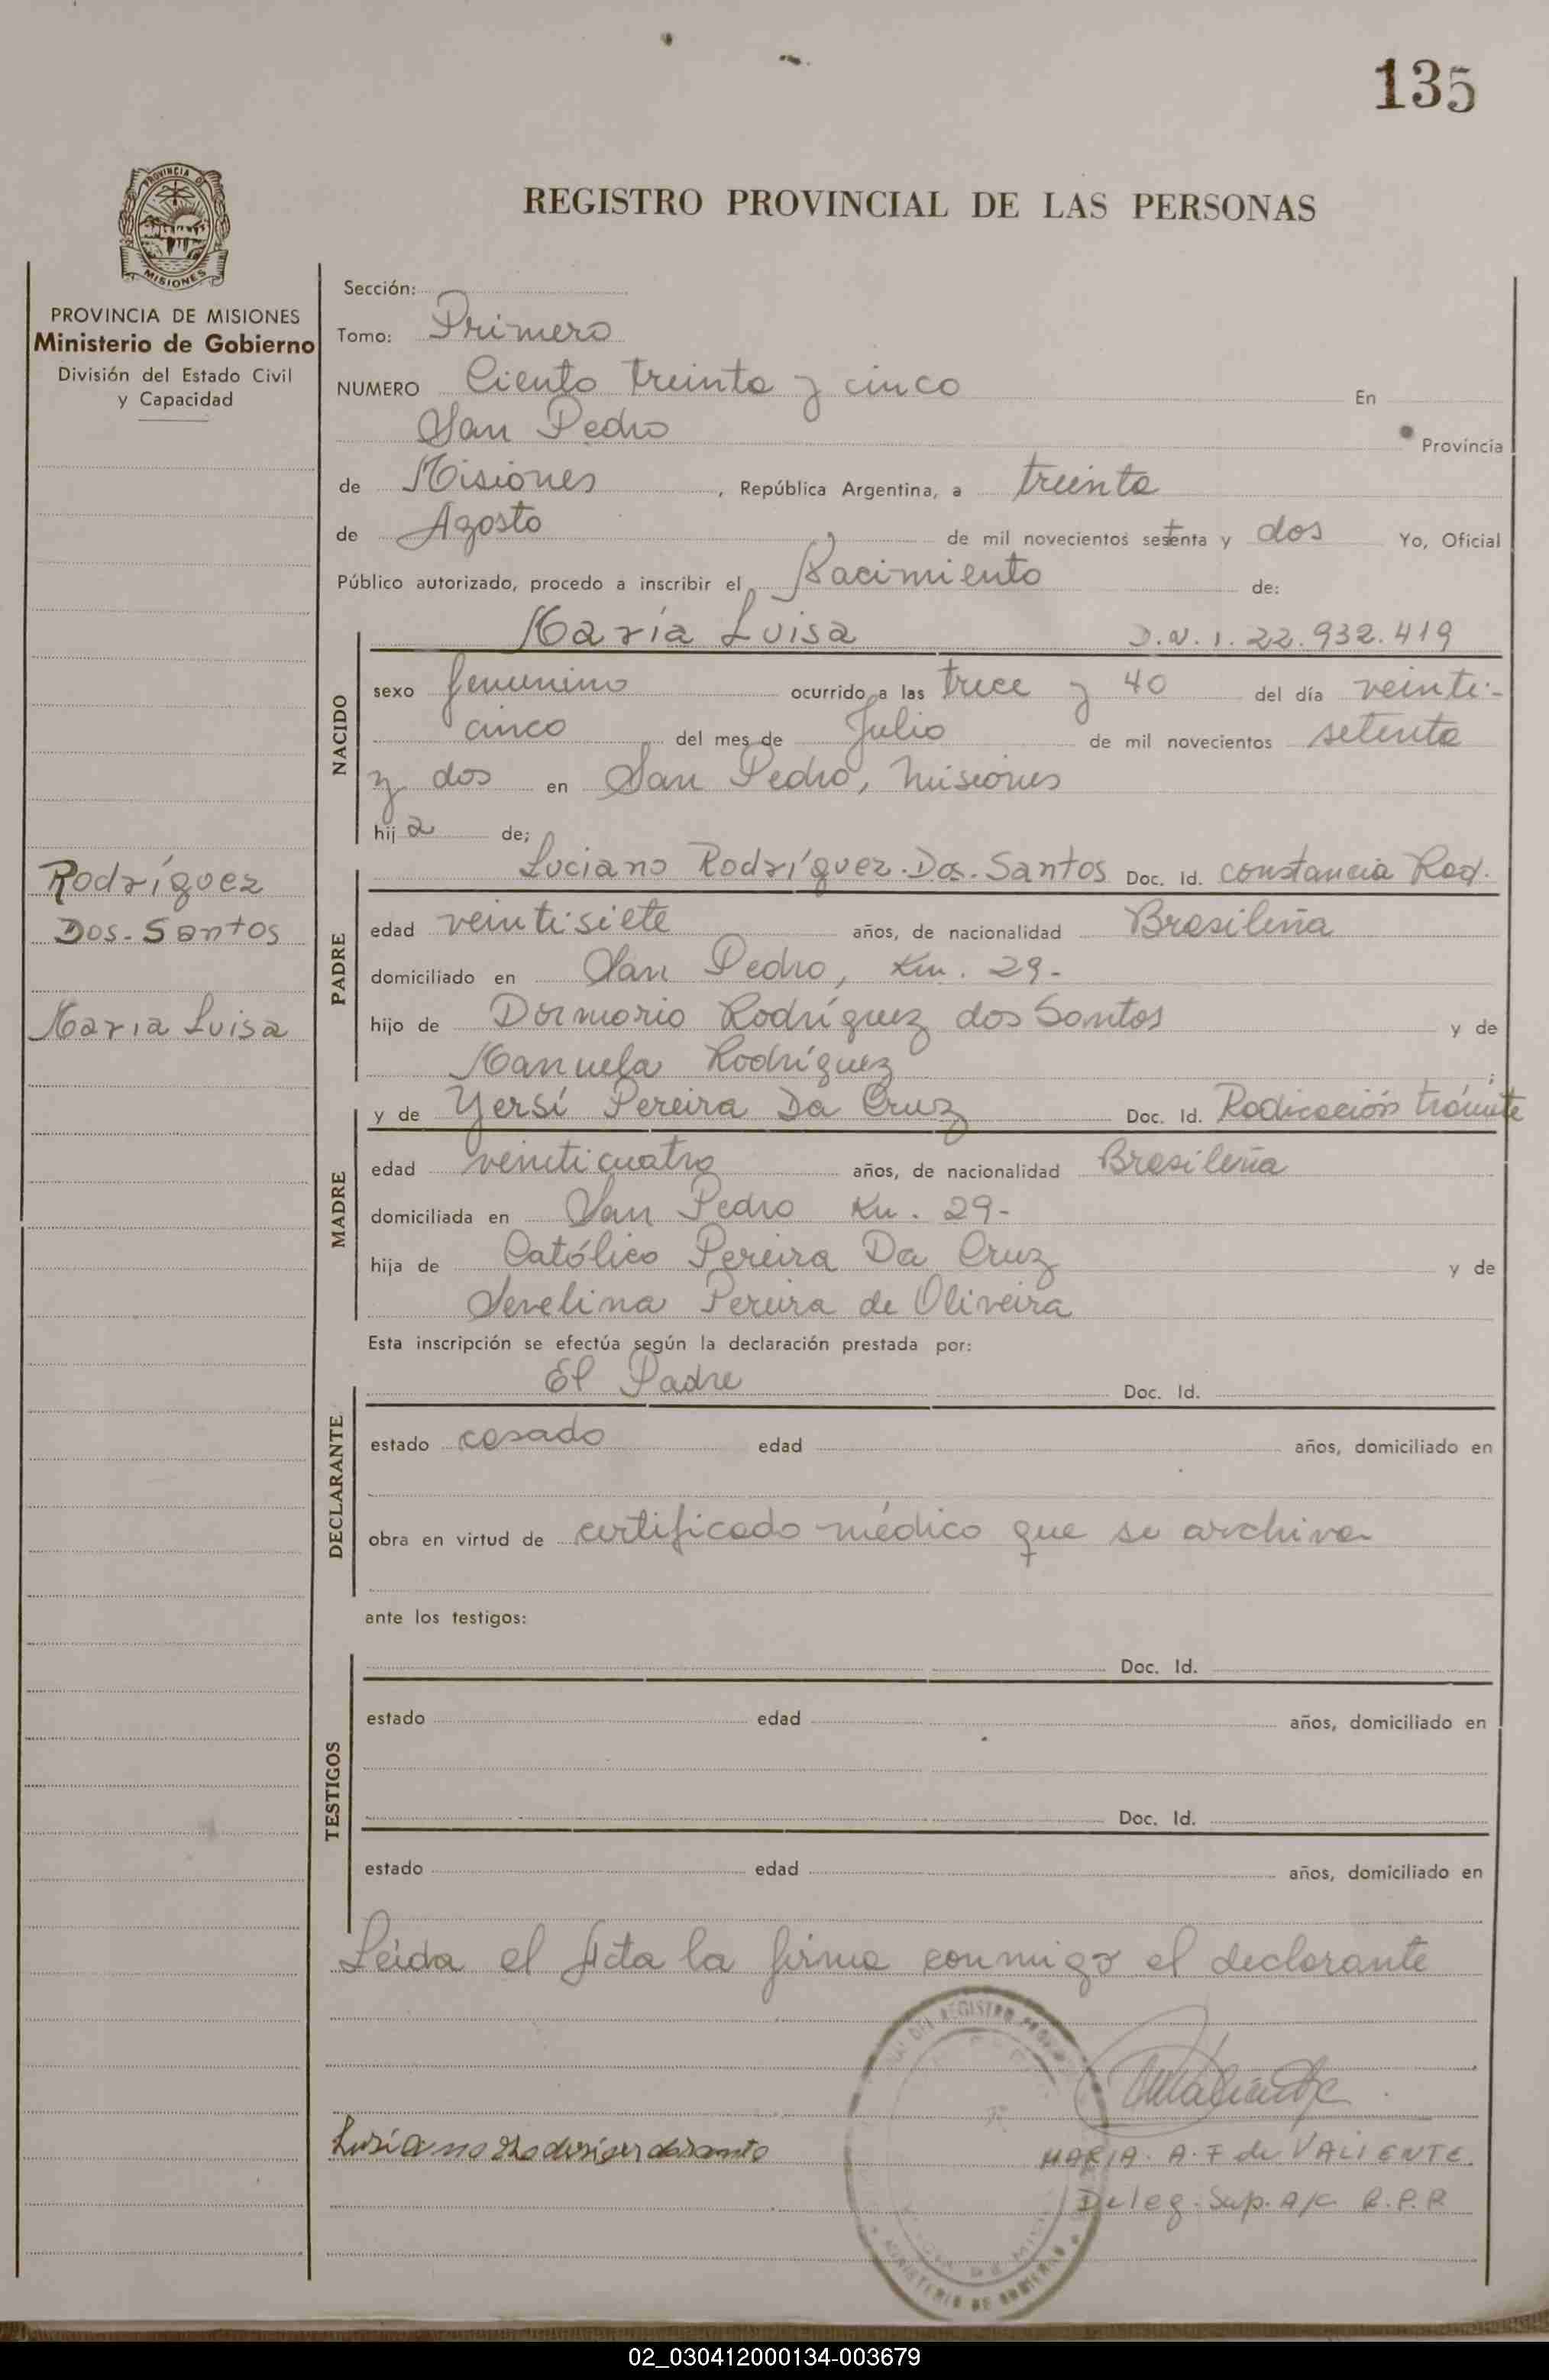 135
PROVINCIA DE
MISIONES
REGISTRO PROVINCIAL DE LAS PERSONAS
PROVINCIA DE MISIONES
Ministerio de Gobierno
División del Estado Civil
y Capacidad
Sección:
Tomo: Primero
NUMERO Ciento treinta y cinco En
San Pedro Provincia
de Misiones, República Argentina, a treinta
de Agosto de mil novecientos setenta y dos Yo, Oficial
Público autorizado, procedo a inscribir el Nacimiento de:
María Luisa D.N.I. 22.932.419
NACIDO
sexo femenino ocurrido a las trece y 40 del día veinti-
cinco del mes de Julio de mil novecientos setenta
y dos en San Pedro, Misiones
hija de;
Rodríguez
Dos-Santos
Maria Luisa
PADRE
Luciano Rodríguez-Dos-Santos Doc. Id. constancia Rad.
edad veintisiete años, de nacionalidad Brasileña
domiciliado en San Pedro, Km. 29-
hijo de Dormorio Rodríguez dos Santos y de
Manuela Rodríguez;
MADRE
y de Yersí Pereira Da Cruz Doc. Id. Radicación trámite
edad veinticuatro años, de nacionalidad Brasileña
domiciliada en San Pedro Km. 29-
hija de Católico Pereira Da Cruz y de
Sevelina Pereira de Oliveira
Esta inscripción se efectúa según la declaración prestada por:
DECLARANTE
El Padre Doc. Id.
estado casado edad años, domiciliado en
obra en virtud de certificado médico que se archiva
ante los testigos:
TESTIGOS
Doc. Id.
estado edad años, domiciliado en
Doc. Id.
estado edad años, domiciliado en
Leída el Acta la firma conmigo el declarante
DEL REGISTRO
MINISTERIO DE GOBIERNO
MARIA. A. F de VALIENTE
Deleg. Sup. A/c R.P.P
02_030412000134-003679